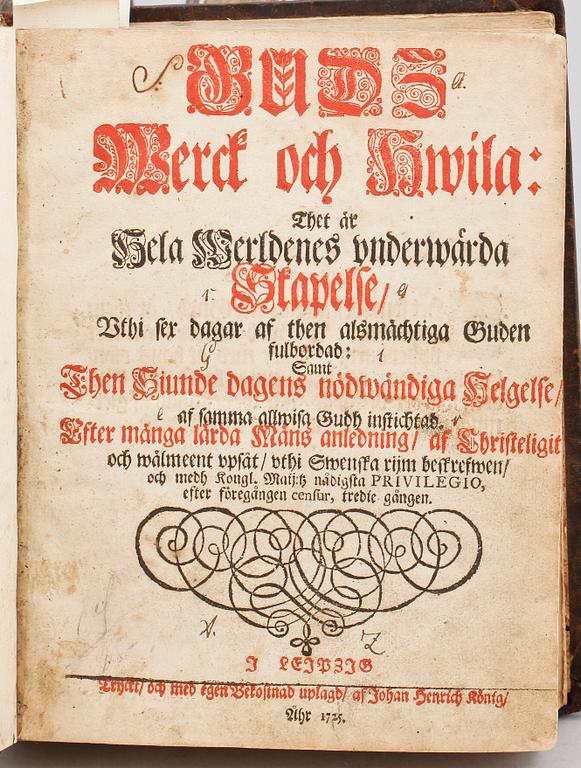 GUDS
Werck och Hwila:
Thet är
Hela Werldenes vnderwärda
Skapelse/
Vthi sex dagar af then alsmächtiga Guden
fulbordad:
Samt
Then Siunde dagens nödwändiga Helgelse/
af samma allwisa Gudh instichtad.
Efter många lärda Mäns anledning/ af Christeligit
och wälmeent vpsåt/ vthi Swenska rijm beskrefwen/
och medh Kongl. Maij:tz nådigsta PRIVILEGIO,
efter föregången censur, tredie gången.
I LEIPZIG
Tryckt/ och med egen Bekostnad uplagd/ af Johan Henrich König/
Åhr 1725.